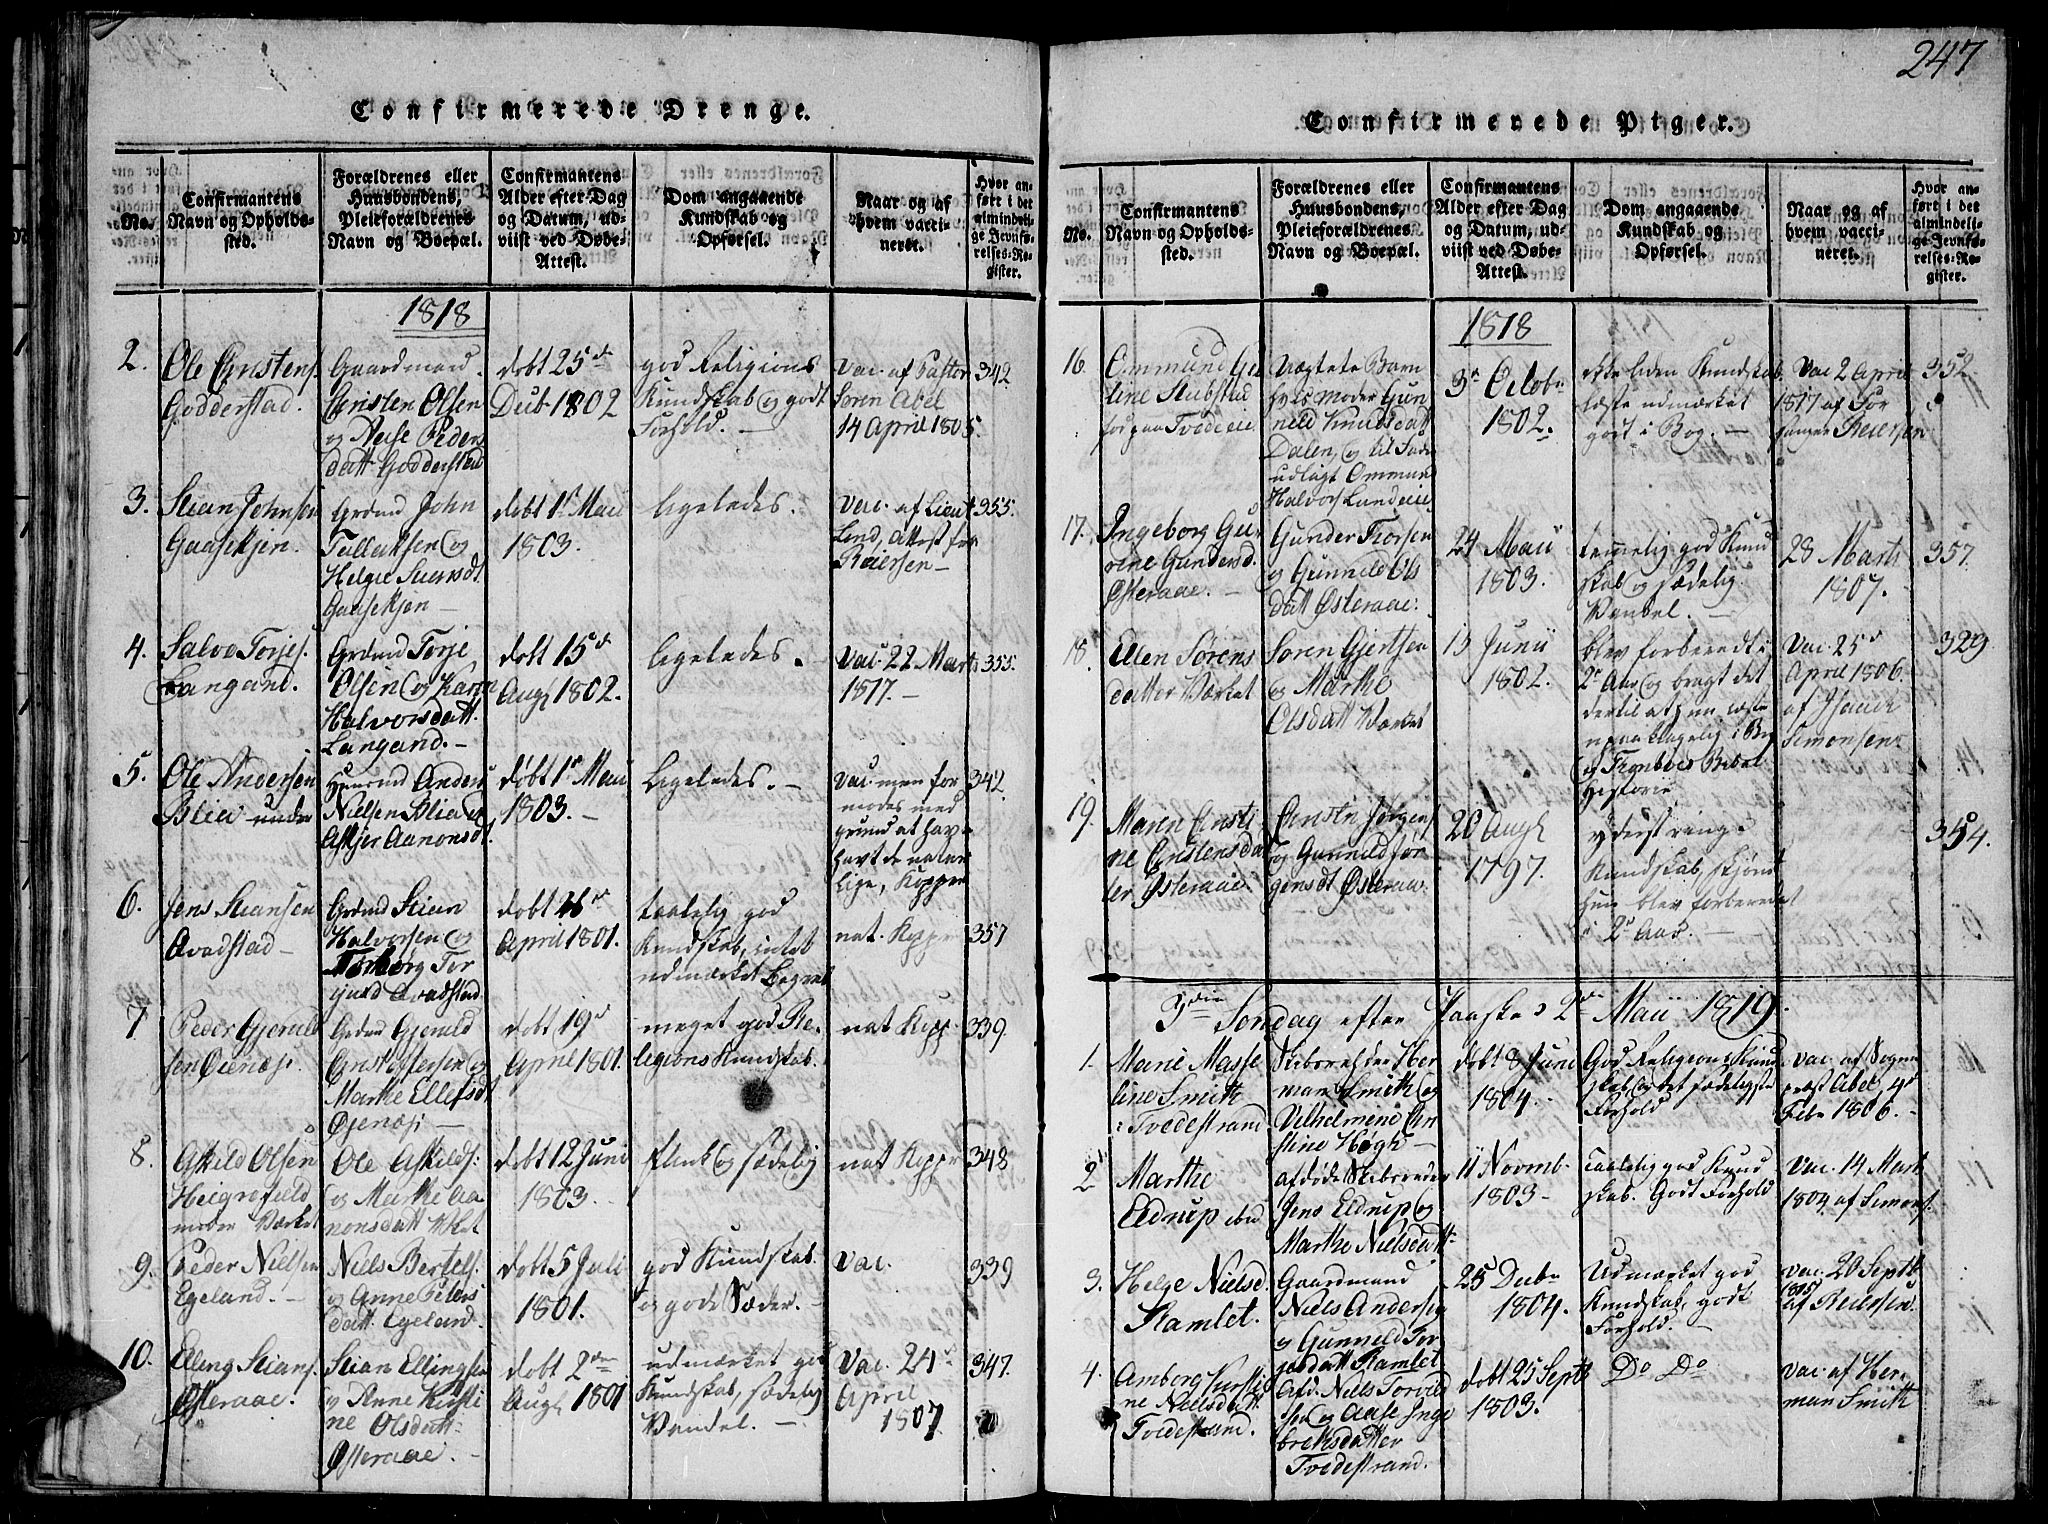 247
Confirmerede Drenge.
No.
Confirmantens
Navn og Opholds-
sted.
Forældrenes eller
Huusbondens,
Pleieforældrenes
Navn og Boepæl.
Confirmantens
Alder efter Dag
og Datum, ud-
viist ved Døbe-
Attest.
Dom angaaende
Kundskab og
Opførsel.
Naar og af
hvem vacci-
neret.
Hvor an-
ført i det
almindeli-
ge Jevnfø-
relses-Re-
gister.
1818
2.
Ole Cristens.
Godderstad.
Gaardmand
Christen Olsen
og Aase Peders
datt Godderstad
døbt 25de
Decb. 1802
god Religions
Kundskab og godt
Forhold. —
Vac. af Pastor
Søren Abel
14 April 1805.
342.
3.
Stian Johnsen
Gaaskjen.
Grdmd John
Tallaksen og
Helge
Gaaskjen —
døbt 1st Maii
1803.
ligeledes.
Vac. af Lieut
Lind, Attest fra
Reiersen —
355.
4.
Salve Torjes.
Langand.
Grdmd Torje
Olsen og Karen
Halvorsdatt.
Langand. —
døbt 15de
Augt 1802.
ligeledes. —
Vac. 22 Marts
1817. —
355.
5.
Ole Andersen
Hunsmd Anders
Nielsen
Askjer Aanonsdt
døbt 1st Maii
1803. —
ligeledes. —
Vac. men for
modes med
grund at have
havt de natur
lige Kopper
342.
6.
Jens Stiansen
Avadstad —
Grdmd Stian
Halvorsen og
Torborg Tor
Avadstad
døbt 26de
April 1801.
taalelig god
Kundskab, intet
udmærket Begreb
nat. Kopper
357
7
Peder Gjeruld
sen Øienæs.
Grdmd Gjeruld
Cristoffersen og
Marthe Ellefsdt
Øjenæs —
døbt 19de
April 1801.
meget god Re-
ligions Kundskab.
nat Kopp.
339.
8.
Askild Olsen
Værket
Ole Askilds:
og Marthe Aa
nonsdatt Vket
døbt 12 Juni
1803. —
flink og sædelig
nat Kopper
348
9.
Peder Nielsen
Egeland. —
Niels Bertels.
og Anne Peders
datt. Egeland.
døbt 5 Juli
1801.
god Kundskab
og gode Sæder. —
Vac.
339
10.
Elling Stians.
Østeraae.
Stian Ellingsen
og Anne Kirsti
ne Olsdatt.
Østeraae. —
døbt 2den
Augt 1801
udmærket god
Kundskab, sædelig
Vandel. —
Vac. 24de
April
1807.
347.
Confirmerede Piger.
No.
Confirmantens
Navn og Opholds-
sted.
Forældrenes eller
Huusbondens,
Pleieforældrenes
Navn og Boepæl.
Confirmantens
Alder efter Dag
og Datum, ud-
viist ved Døbe-
Attest.
Dom angaaende
Kundskab og
Opførsel.
Naar og af
hvem vacci-
neret.
Hvor an-
ført i det
almindeli-
ge Jevnfø-
relses-Re-
gister.
1818
16.
Ommund Gu
line Stubstad
fød paa Tvedeeie
Uægtete Barn
hvis moder Gun
neld Knudsdatt
Dalen, og til Fader
udlagt Ommun
Halvors. Lundeeie
3de Octobr
1802.
ikke liden Kundskab
læste udmærket
godt i Bog. —
Vac 2 April
1817 af For
sanger Reiersen
352
17.
Ingeborg Gu
rine Gundersd.
Østeraae. —
Gunder Torsen
og Gunneld Ols
datt Østeraae.
24 Maii
1803.
temmelig god Kund
skab og sædelig
Vandel. —
28 Marts
1807.
357.
18.
Ellen Sørens
datter Værket
Søren Gjertsen
og Marthe
Olsdatt Værket
13 Junii
1802.
blev forberedt i
2de Aar og bragt det
dertil at hun læste
upaaklagelig i Bog
Historie
Vac. 25de
April 1806.
af Isaach
Simonsen
329
19.
Maren Cristi
ne Cristensdat
ter Østeraae.
Cristen Jørgens.
og Gunneld Jør
gensdt Østeraae.
20 Augt
1797.
yderst ringe
Kundskab, skjønt
hun blev forberedet
i 2de Aar. —
354.
3die Søndag efter Paaske, 2den Maii 1819.
1.
Marie Masse
line Smith
Tvedestrand
Skibsrehder Her
man Smith og
Vilhelmine Cri
stine Høgh —
døbt 8 Juni
1804.
God Religions Kund
skab og det sædeligste
Forhold
Vac. af Sogne
præst Abel 4de
Febr 1806. —
2
Marthe
Eldrup ibid
afdøde Skibsreder
Jens Eldrup og
Marthe Nielsdatt
11 Novmb.
1803 —
Taalelig god Kund
skab. Godt Forhold
Vac. 14 Mart
1804 af Simons.
3.
Helge Nielsd.
Ramlet.
Gaardmand
Niels Andersen
og Gunneld Tor
Ramlet
25 Decbr
1804.
Udmærket god
Kundskab, godt
Forhold. —
Vac. 20 Septb
1815
af Reiersen.
4.
Amborg Kirsti
ne Nielsdatt.
Tvedestrand.
Afd. Niels Torvild
sen og Aase Inge
breksdatter
Tvedestrand.
døbt 25 Septb
1803.
Do Do
Vac. af Her
man Smith